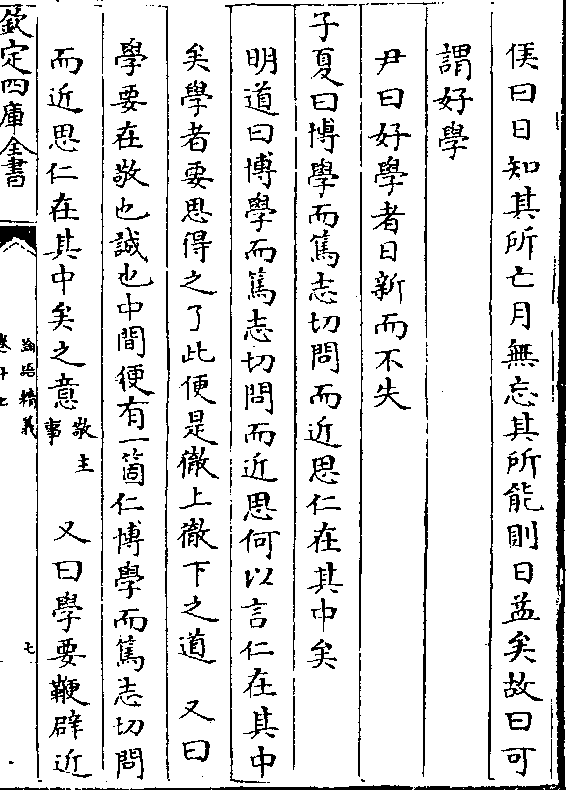 侯曰日知其所亡月無忘其所能則日益矣故曰可
謂好學
尹曰好學者日新而不失
子夏曰博學而篤志切問而近思仁在其中矣
明道曰博學而篤志切問而近思何以言仁在其中
矣學者要思得之了此便是徹上徹下之道 又曰
學要在敬也誠也中間便有一箇仁博學而篤志切問
而近思仁在其中矣之意敬主事 又曰學要鞭辟近
欽定四庫全書
論語精義
卷十七
七